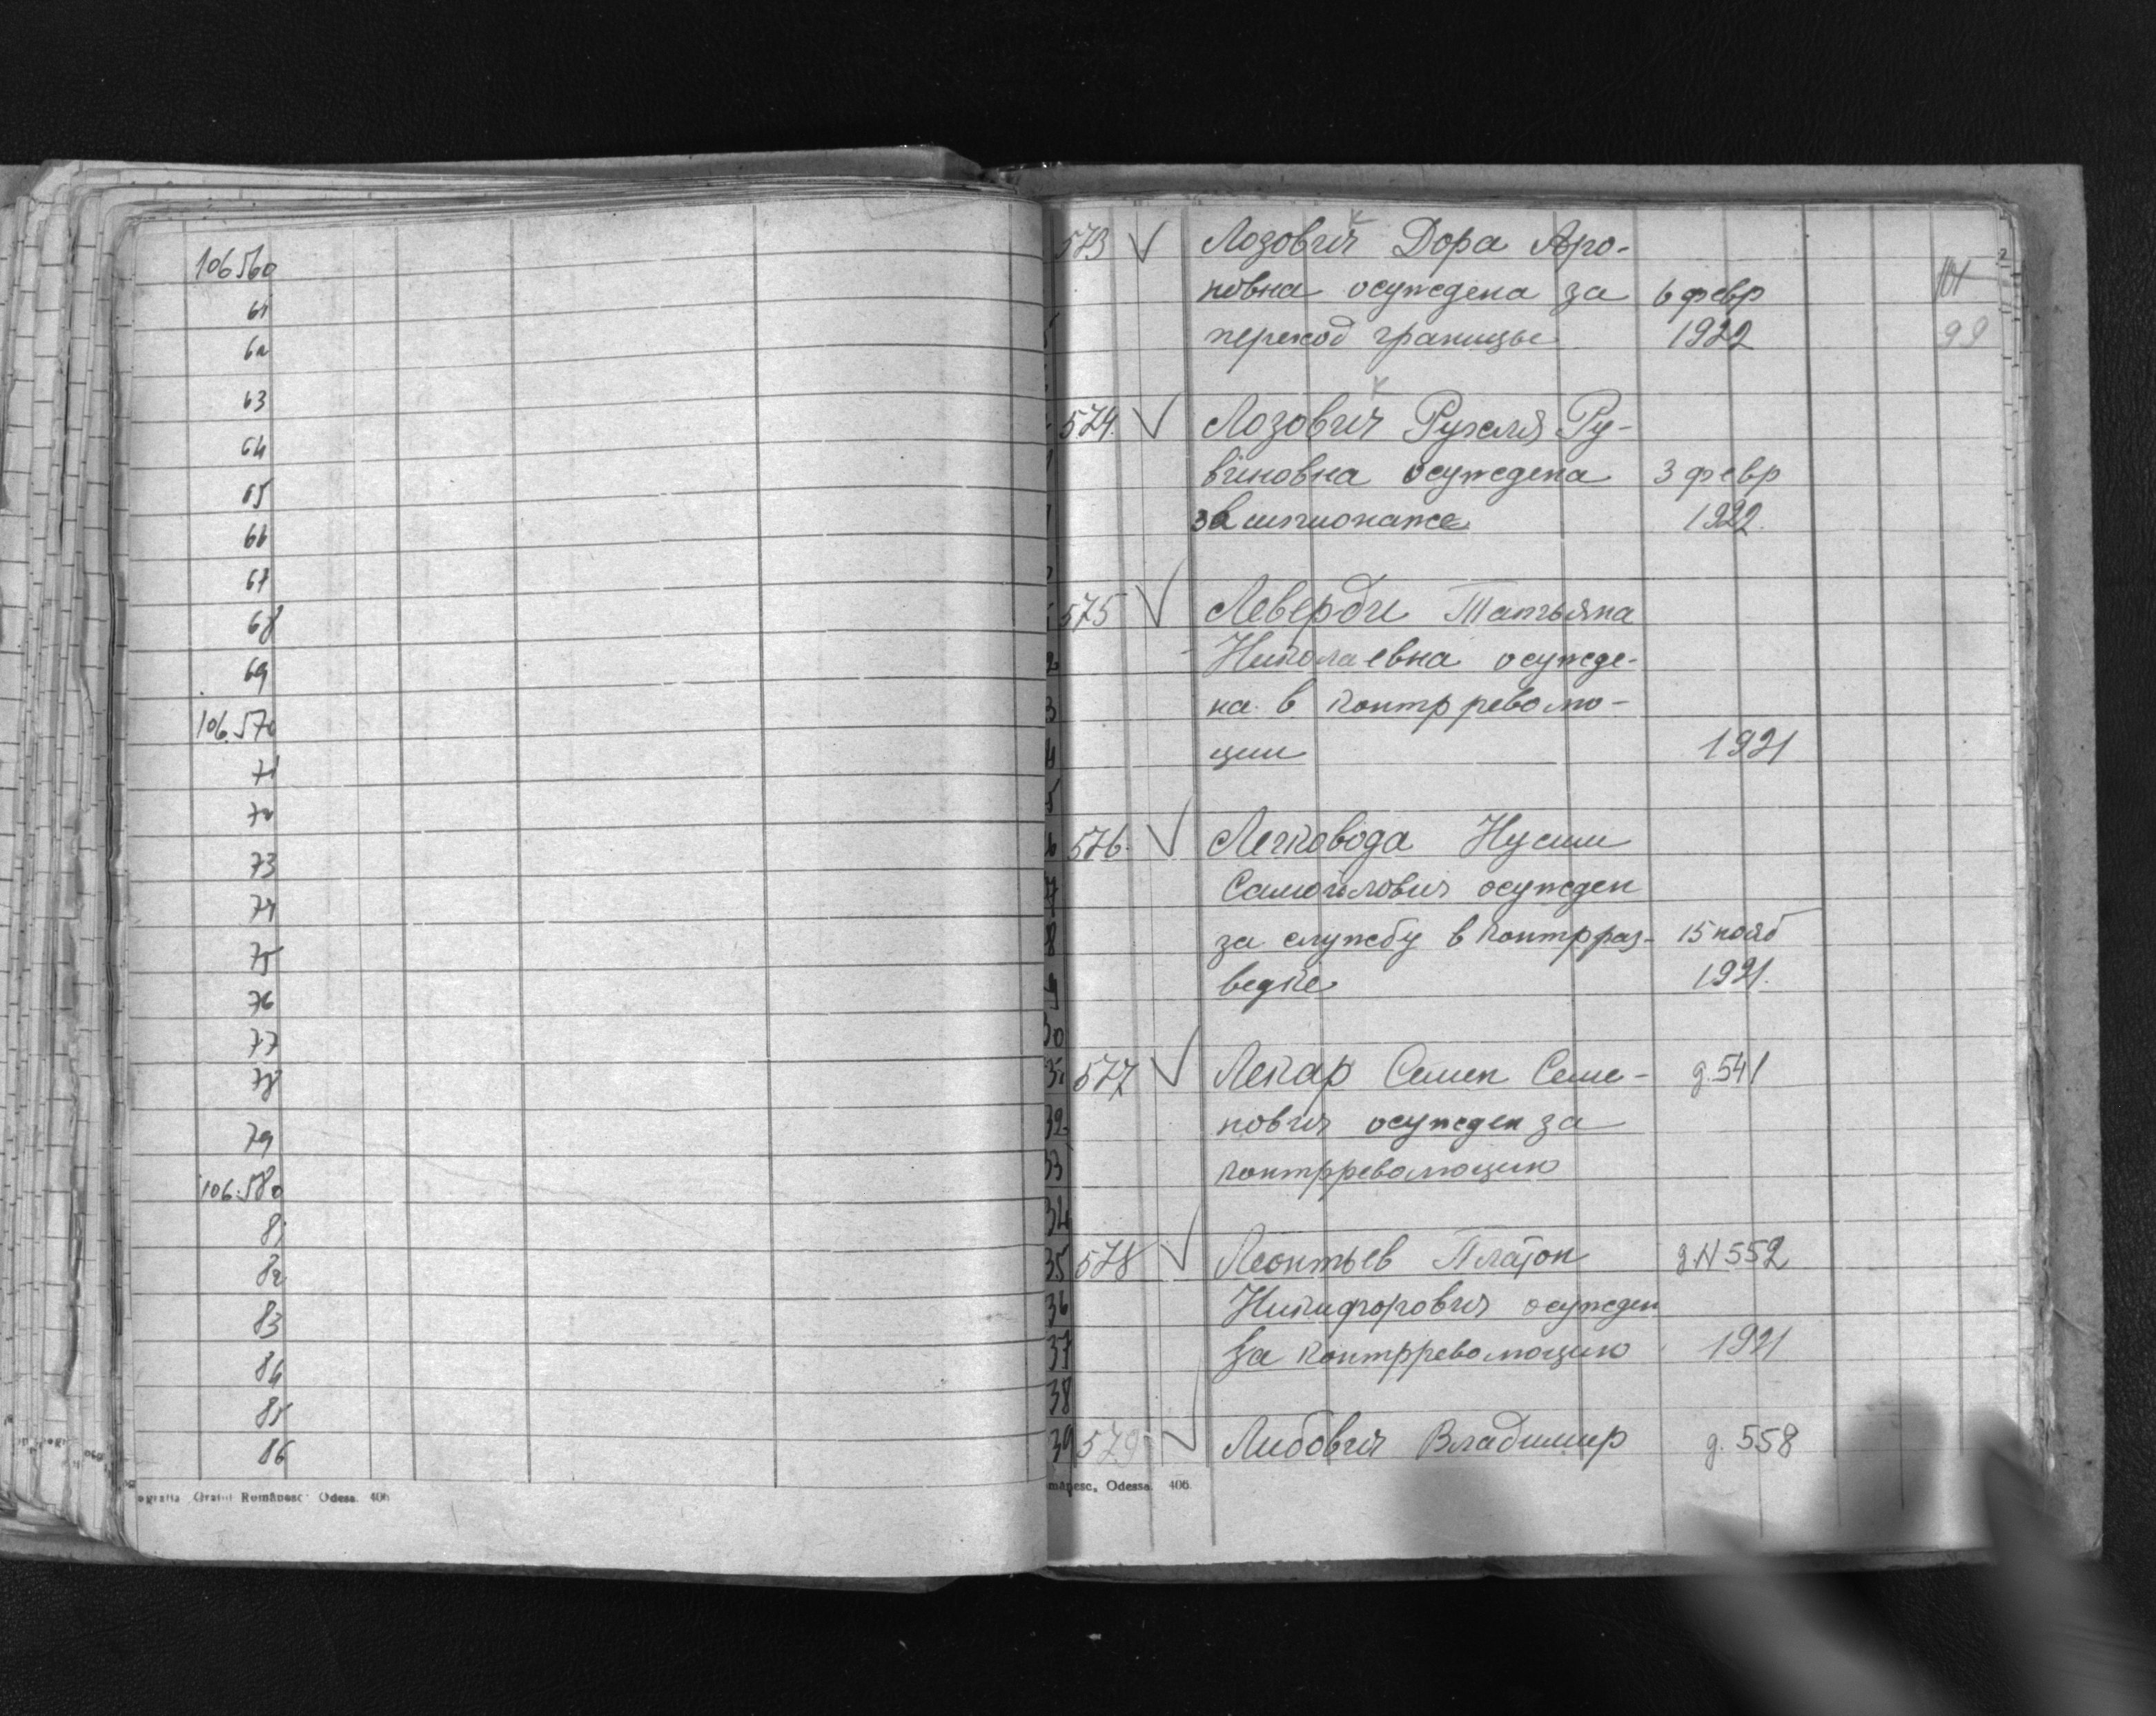 106560
61
62
63
64
65
66
67
68
69
106.570
71
72
73
74
75
76
77
78
79
106.580
81
82
83
84
85
86
ografia "Graiul Românesc" Odesa. 406
101
99
573 Лозович Дора Аро-
новна осуждена за 6 февр
переход границы 1922
574. Лозович Рухля Ру-
виновна осуждена 3 февр
за шпионаже 1922.
575 Леверди Татьяна
Николаевна осужде-
на в контрреволю-
ции 1921
576. Легковода Нусим
Самойлович осужден
за службу в контрраз- 15 нояб
ведке 1921.
577 Лекар Семен Семе- д. 541
нович осужден за
контрреволюцию
578 Леонтьев Платон д. N 552
Никифорович осужден
за контрреволюцию 1921
579 Либович Владимир д. 558
30
32
33
34
35
36
37
38
39
mânesc, Odessa. 406.